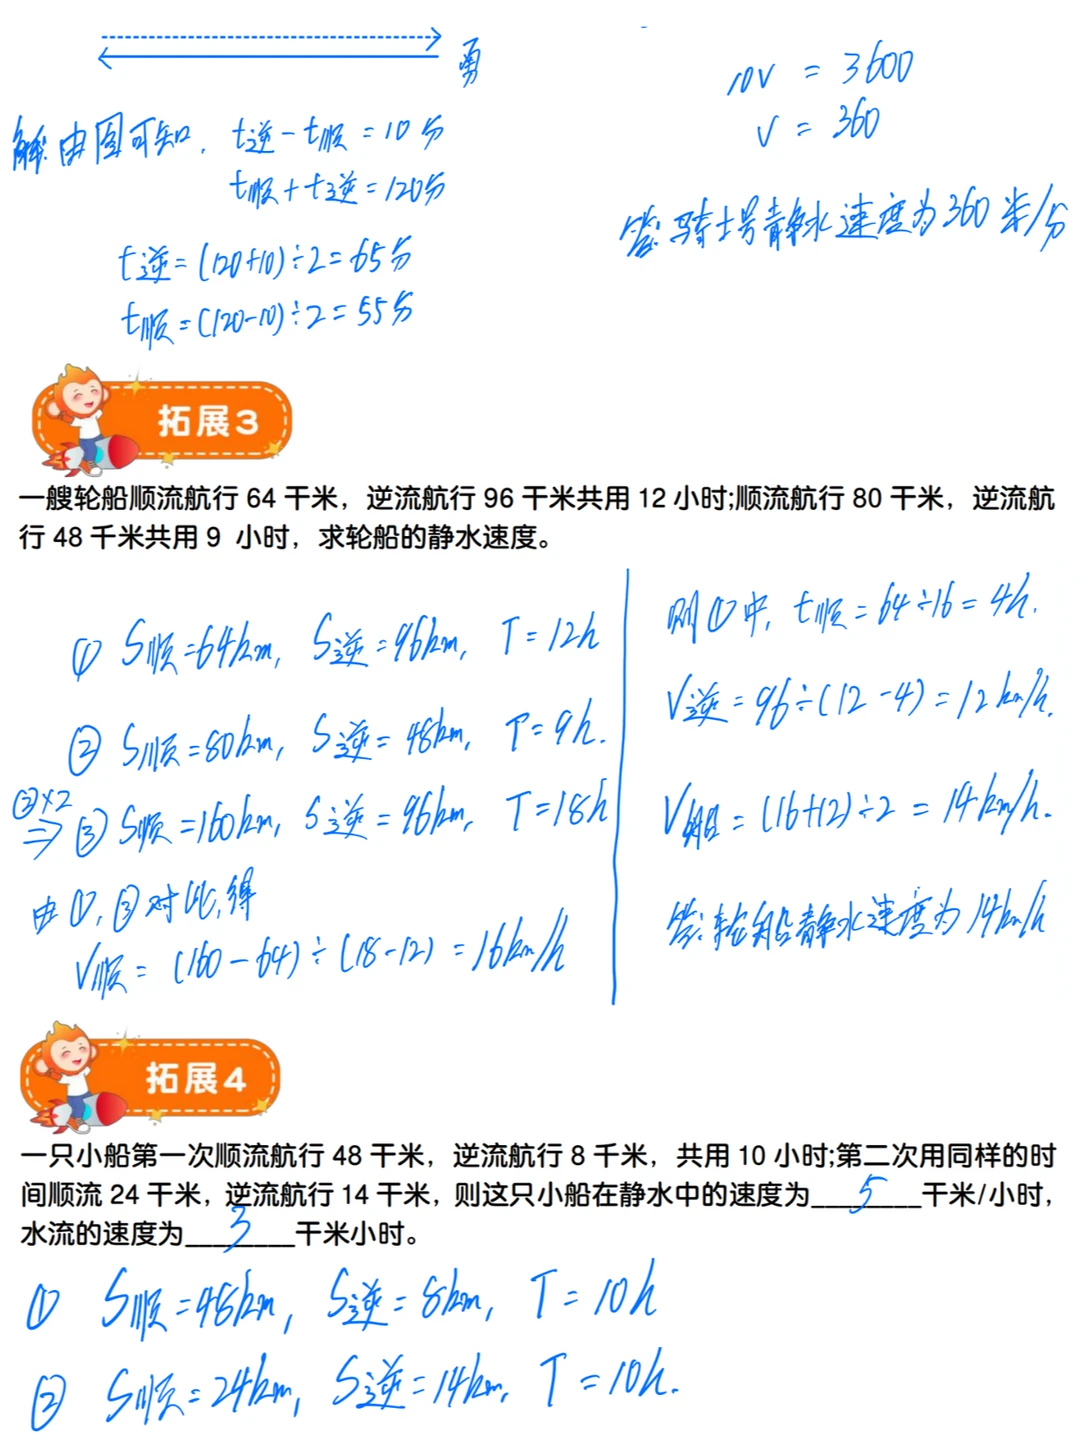 勇
解:由图可知, t逆-t顺=10分
t顺+t逆=120分
t逆=(120+10)÷2=65分
t顺=(120-10)÷2=55分
10v = 3600
v = 360
答:骑士号静水速度为360米/分
拓展3
一艘轮船顺流航行 64 千米，逆流航行 96 千米共用 12 小时;顺流航行 80 千米，逆流航
行 48 千米共用 9 小时，求轮船的静水速度。
① S顺=64km, S逆=96km, T=12h
② S顺=80km, S逆=48km, T=9h.
②×2
⇒ ③ S顺=160km, S逆=96km, T=18h
由①,③对比,得
V顺= (160-64)÷(18-12) =16km/h
则①中, t顺=64÷16=4h.
V逆=96÷(12-4)=12km/h.
V船=(16+12)÷2=14km/h.
答:轮船静水速度为14km/h
拓展4
一只小船第一次顺流航行 48 千米，逆流航行 8 千米，共用 10 小时;第二次用同样的时
间顺流 24 千米，逆流航行 14 千米，则这只小船在静水中的速度为___5___千米/小时，
水流的速度为___3___千米小时。
① S顺=48km, S逆=8km, T=10h
② S顺=24km, S逆=14km, T=10h.